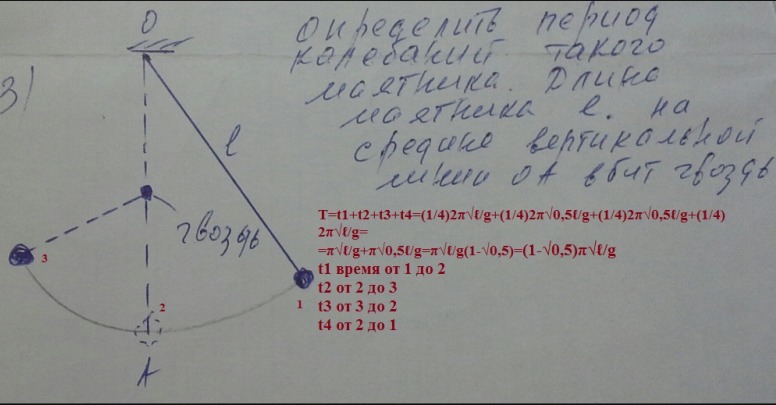 O
3)
Определить период
колебаний такого
маятника. Длина
маятника ℓ. на
средине вертикальной
линии OA вбит гвоздь
ℓ
гвоздь
T=t1+t2+t3+t4=(1/4)2π√ℓ/g+(1/4)2π√0,5ℓ/g+(1/4)2π√0,5ℓ/g+(1/4)
2π√ℓ/g=
=π√ℓ/g+π√0,5ℓ/g=π√ℓ/g(1-√0,5)=(1-√0,5)π√ℓ/g
t1 время от 1 до 2
t2 от 2 до 3
t3 от 3 до 2
t4 от 2 до 1
3
2
1
A